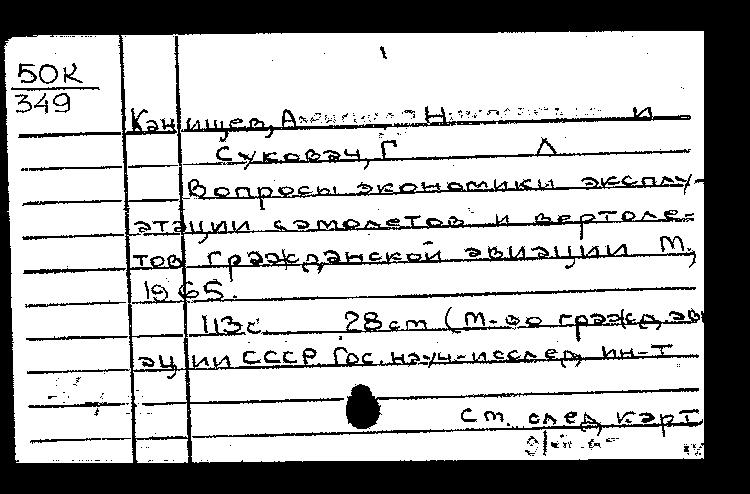 50К
349
Канищев, А Н и
Суковач, Г Л
Вопросы экономики эксплу-
атации самолетов и вертоле=
тов гражданской авиации М.,
1965.
113с. 28cm (М-во гражд, ави
ации СССР. Гос. науч-исслед, ин-т
См. след, карт